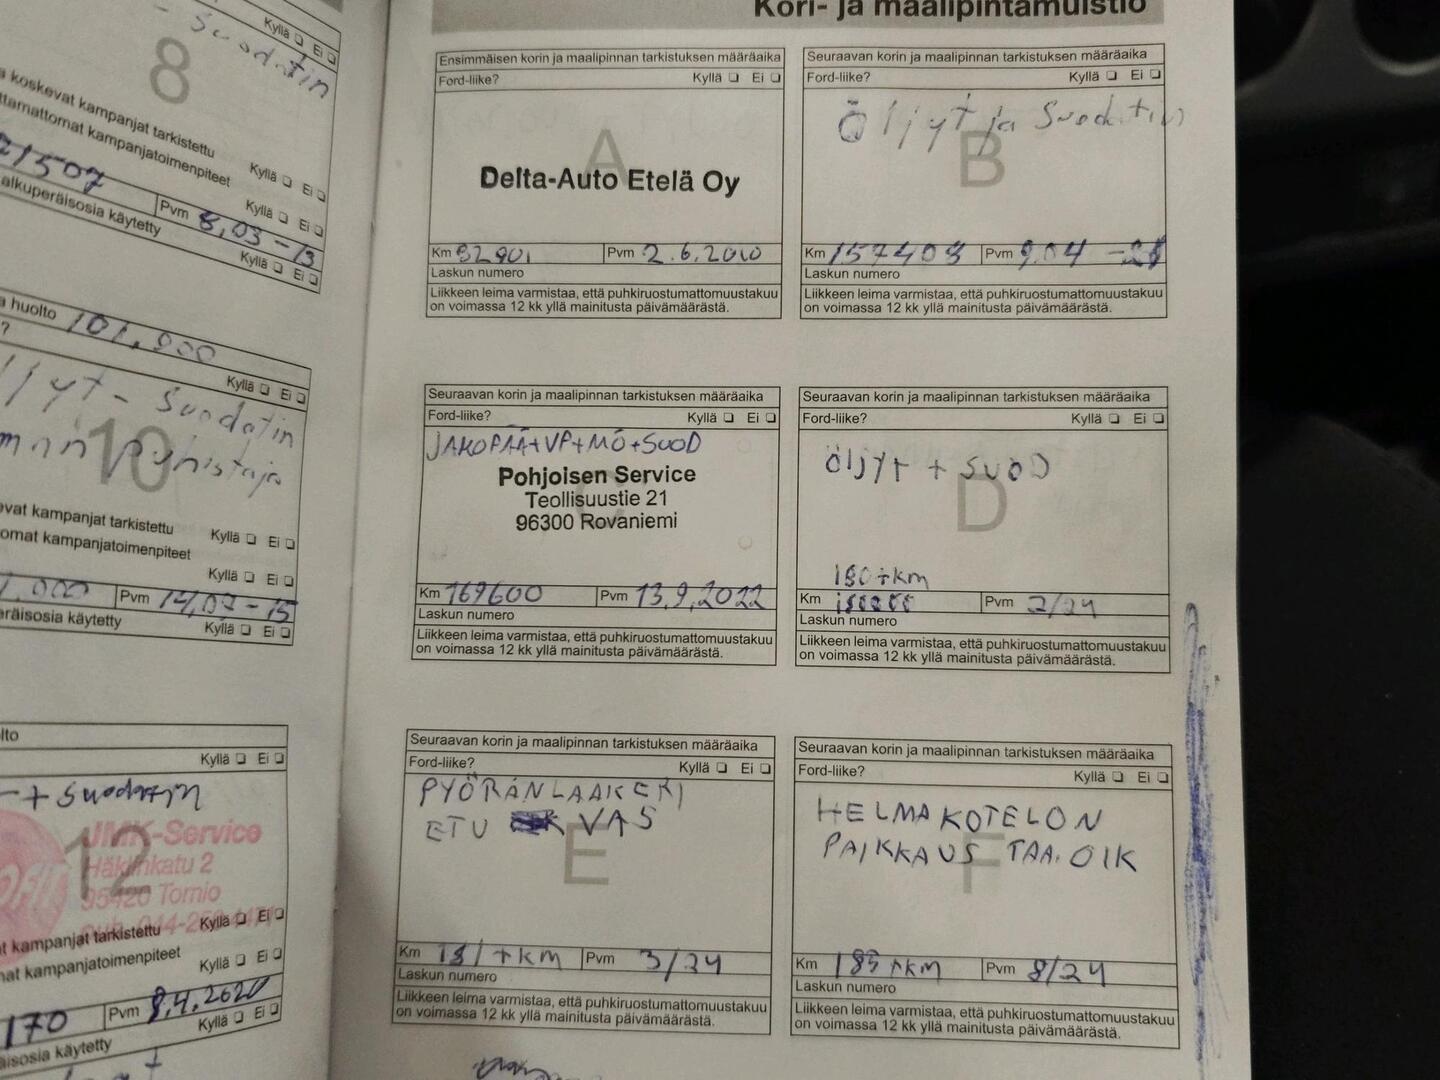 - Suodatin
Kyllä ❏ Ei ❏
8
koskevat kampanjat tarkistettu
Kyllä ❏ Ei ❏
ttamattomat kampanjatoimenpiteet
Kyllä ❏ Ei ❏
21507
Pvm 8,03-13
alkuperäisosia käytetty
Kyllä ❏ Ei ❏
huolto 101.000
?
Kyllä ❏ Ei ❏
ljyt - Suodatin
10
vat kampanjat tarkistettu
Kyllä ❏ Ei ❏
omat kampanjatoimenpiteet
Kyllä ❏ Ei ❏
1.000
Pvm 14,07-15
eräisosia käytetty
Kyllä ❏ Ei ❏
lto
Kyllä ❏ Ei ❏
+ Suodatin
12
JMK-Service
Häkinkatu 2
95420 Tornio
Kyllä ❏ Ei ❏
t kampanjat tarkistettu
mat kampanjatoimenpiteet
Kyllä ❏ Ei ❏
170
Pvm 8.4.2020
Kyllä ❏ Ei ❏
äisosia käytetty
Kori- ja maalipintamuistio
Ensimmäisen korin ja maalipinnan tarkistuksen määräaika
Ford-liike? Kyllä ❏ Ei ❏
A
Delta-Auto Etelä Oy
Km 32901 Pvm 2.6.2010
Laskun numero
Liikkeen leima varmistaa, että puhkiruostumattomuustakuu
on voimassa 12 kk yllä mainitusta päivämäärästä.
Seuraavan korin ja maalipinnan tarkistuksen määräaika
Ford-liike? Kyllä ❏ Ei ❏
Öljyt ja Suodatin
B
Km 157403 Pvm 9.04 -21
Laskun numero
Liikkeen leima varmistaa, että puhkiruostumattomuustakuu
on voimassa 12 kk yllä mainitusta päivämäärästä.
Seuraavan korin ja maalipinnan tarkistuksen määräaika
Ford-liike? Kyllä ❏ Ei ❏
JAKOPÄÄ+VP+MÖ+SUOD
C
Pohjoisen Service
Teollisuustie 21
96300 Rovaniemi
Km 169600 Pvm 13.9.2022
Laskun numero
Liikkeen leima varmistaa, että puhkiruostumattomuustakuu
on voimassa 12 kk yllä mainitusta päivämäärästä.
Seuraavan korin ja maalipinnan tarkistuksen määräaika
Ford-liike? Kyllä ❏ Ei ❏
Öljyt + SUOD
D
180tkm
Km Pvm 2/24
Laskun numero
Liikkeen leima varmistaa, että puhkiruostumattomuustakuu
on voimassa 12 kk yllä mainitusta päivämäärästä.
Seuraavan korin ja maalipinnan tarkistuksen määräaika
Ford-liike? Kyllä ❏ Ei ❏
PYÖRÄNLAAKERI
ETU VAS
E
Km 181tkm Pvm 3/24
Laskun numero
Liikkeen leima varmistaa, että puhkiruostumattomuustakuu
on voimassa 12 kk yllä mainitusta päivämäärästä.
Seuraavan korin ja maalipinnan tarkistuksen määräaika
Ford-liike? Kyllä ❏ Ei ❏
HELMAKOTELON
PAIKKAUS TAA. OIK
F
Km 185tkm Pvm 8/24
Laskun numero
Liikkeen leima varmistaa, että puhkiruostumattomuustakuu
on voimassa 12 kk yllä mainitusta päivämäärästä.